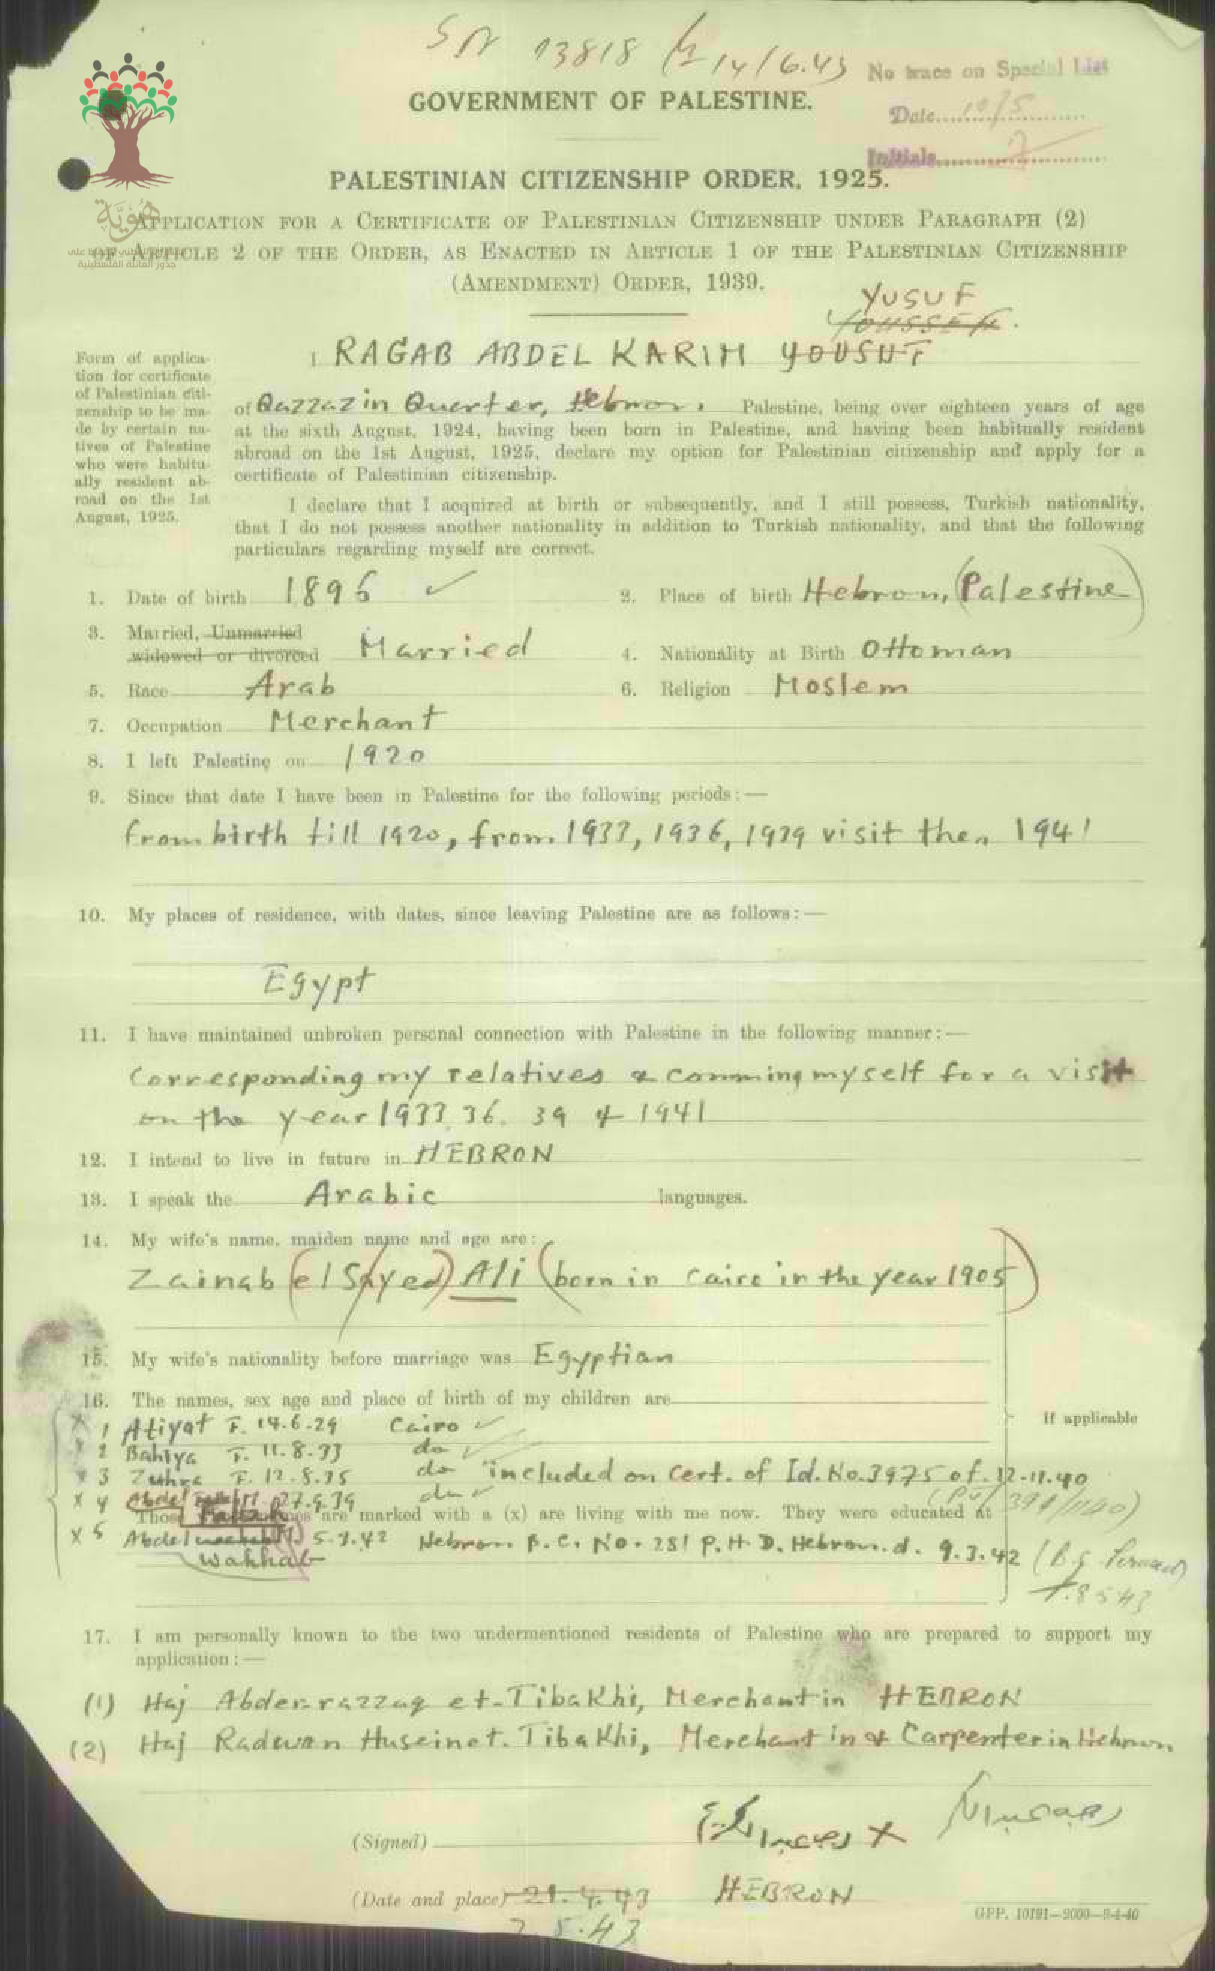 SN 13818 14/6.43
No trace on Special List
GOVERNMENT OF PALESTINE.
Date 10/5
Initials
PALESTINIAN CITIZENSHIP ORDER, 1925.
هُوِيَّة
APPLICATION FOR A CERTIFICATE OF PALESTINIAN CITIZENSHIP UNDER PARAGRAPH (2)
OF ARTICLE 2 OF THE ORDER, AS ENACTED IN ARTICLE 1 OF THE PALESTINIAN CITIZENSHIP
جذور العائلة الفلسطينية
(AMENDMENT) ORDER, 1939.
YUSUF
YOUSSEF.
Form of applica-
tion for certificate
of Palestinian citi-
zenship to be ma-
de by certain na-
tives of Palestine
who were habitu-
ally resident ab-
road on the 1st
August, 1925.
I RAGAB ABDEL KARIM YOUSUF
of Qazzazin Querter, Hebron. Palestine, being over eighteen years of age
at the sixth August, 1924, having been born in Palestine, and having been habitually resident
abroad on the 1st August, 1925, declare my option for Palestinian citizenship and apply for a
certificate of Palestinian citizenship.
I declare that I acquired at birth or subsequently, and I still possess, Turkish nationality,
that I do not possess another nationality in addition to Turkish nationality, and that the following
particulars regarding myself are correct.
1. Date of birth 1896 2. Place of birth Hebron, (Palestine)
3. Married, Unmarried
widowed or divorced Married 4. Nationality at Birth Ottoman
5. Race Arab 6. Religion Moslem
7. Occupation Merchant
8. I left Palestine on 1920
9. Since that date I have been in Palestine for the following periods:—
from birth till 1920, from 1933, 1936, 1939 visit then 1941
10. My places of residence, with dates, since leaving Palestine are as follows:—
Egypt
11. I have maintained unbroken personal connection with Palestine in the following manner:—
Corresponding my relatives & comming myself for a visit
on the year 1933 36. 39 & 1941
12. I intend to live in future in HEBRON
13. I speak the Arabic languages.
14. My wife's name, maiden name and age are:
Zainab (el Sayed) Ali (born in Cairo in the year 1905)
15. My wife's nationality before marriage was Egyptian
16. The names, sex age and place of birth of my children are
If applicable
x 1 Atiyat F. 14.6.29 Cairo
x 2 Bahiya F. 11.8.33 do
x 3 Zuhra F. 12.8.35 do included on Cert. of Id. No. 3975 of 12.11.40
x 4 Abdel Fattah 27.9.39 do
Those names are marked with a (x) are living with me now. They were educated at
x 5 Abdel wahhab 5.3.42 Hebron B.C. No. 281 P.H.D. Hebron. d. 9.3.42
17. I am personally known to the two undermentioned residents of Palestine who are prepared to support my
application:—
(1) Haj Abder-razzaq et-Tibakhi, Merchant in HEBRON
(2) Haj Radwan Husein et. Tibakhi, Merchant in & Carpenter in Hebron.
(Signed) X
(Date and place) 21.4.43 HEBRON
5.43
GPP. 10191—2000—9-4-40